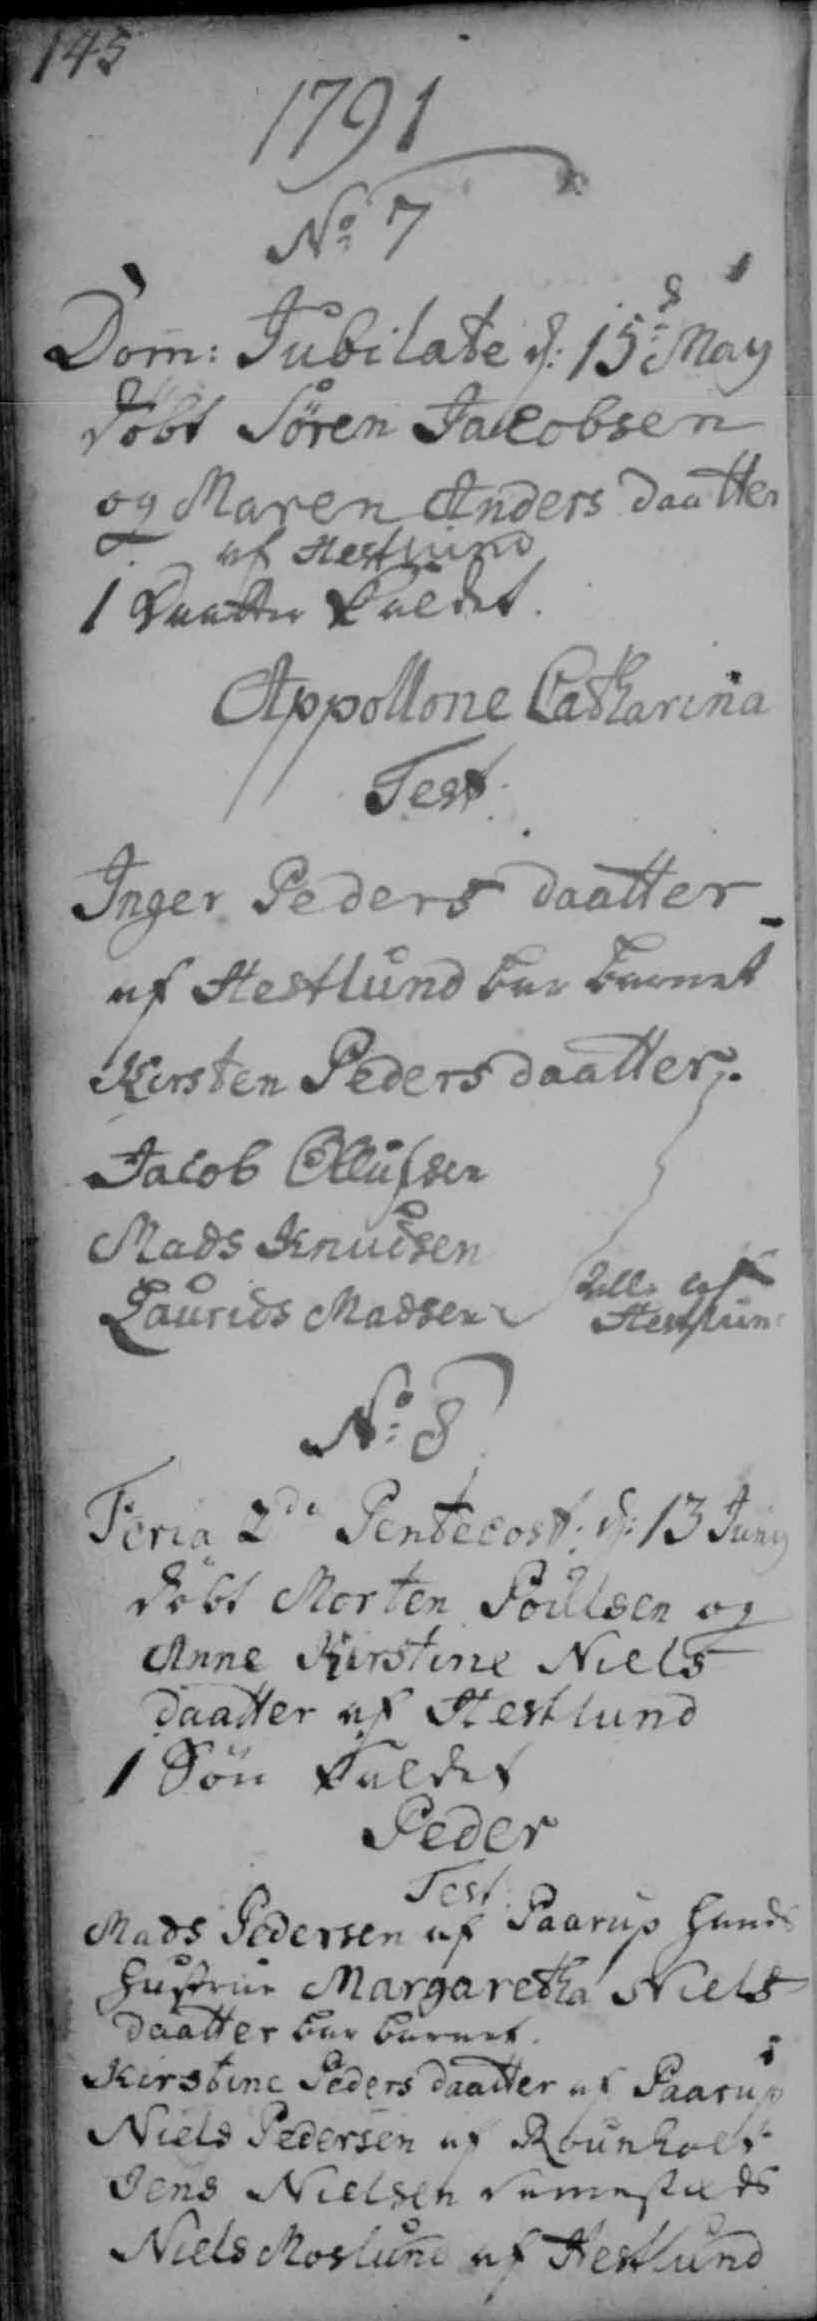 145
1791
No 7
Dom: Jubilate d: 15de May
döbt Sören Jacobsen
og Maren Anders daatter
af Hestlund
1 Daatter kaldet.
Appollone Catharina
Test:
Inger Peders daatter
af Hestlund bar barnet
Kirsten Peders daatter.
Jacob Ollufsen
Mads Knudsen
Laurids Madsen
alle af
Hestlund
No 8
Feria 2da Pentecost: d: 13 Juny
döbt Morten Poulsen og
Anne Kirstine Niels
daatter af Hestlund
1 Sön kaldet
Peder
Test.
Mads Pedersen af Paarup hands
hustrue Margaretha Niels
daatter bar barnet.
Kirstine Peders daatter af Paarup
Niels Pedersen af Rounholt
Jens Nielsen sammestæds
Niels Moslund af Hestlund